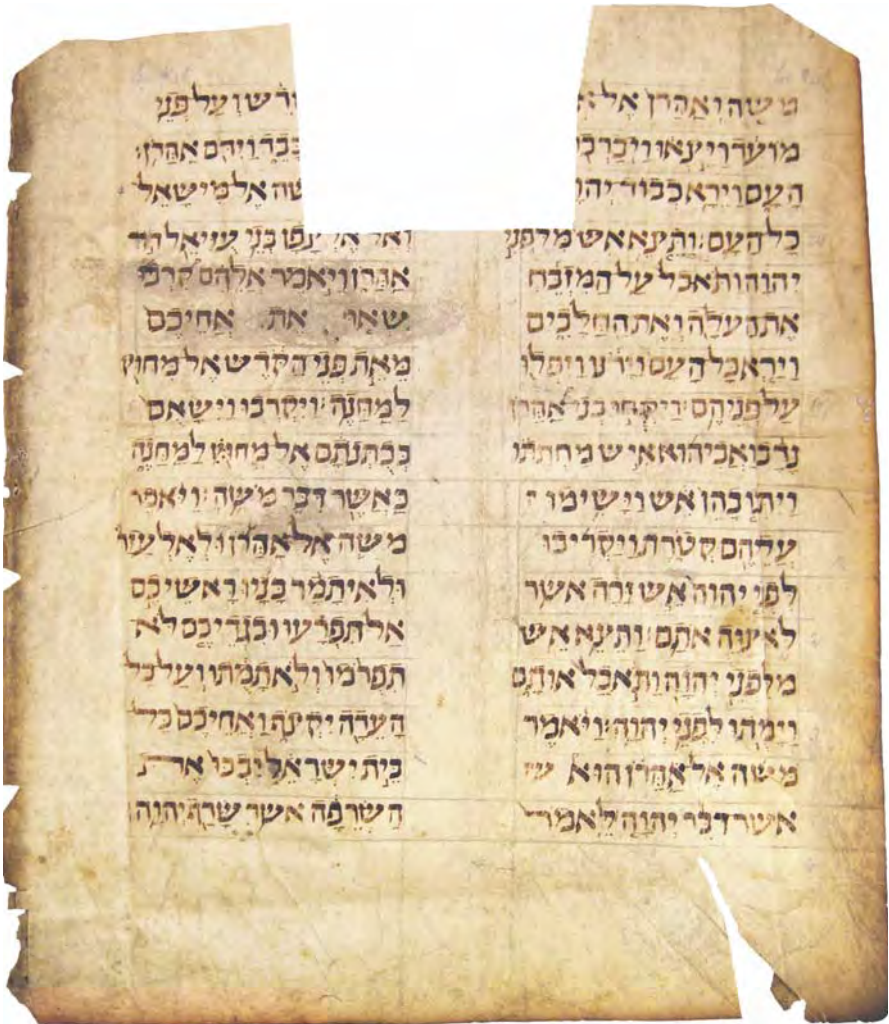 משה ואהרן אל
מועד ויצאו ויברכו
העם וירא כבוד
כל העם: ותצא אש מלפני
יהוה ותאכל על המזבח
את העלה ואת החלבים
וירא כל העם וירנו ויפלו
על פניהם: ויקחו בני אהרן
נדב ואביהוא איש מחתתו
ויתנו בהן אש וישימו
קטרת ויקריבו
לפני יהוה אש זרה אשר
לא צוה אתם: ותצא אש
מלפני יהוה ותאכל אותם
וימתו לפני יהוה: ויאמר
משה אל אהרן הוא
אשר דבר יהוה לאמר
ועל פני
וידם אהרן:
אל מישאל
ואל אלצפן בני עזיאל דד
אהרן ויאמר אלהם קרבו
שאו את אחיכם
מאת פני הקדש אל מחוץ
למחנה: ויקרבו וישאם
בכתנתם אל מחוץ למחנה
כאשר דבר משה: ויאמר
משה אל אהרן ולאלעזר
ולאיתמר בניו ראשיכם
אל תפרעו ובגדיכם לא
תפרמו ולא תמתו ועל כל
העדה יקצף ואחיכם כל
בית ישראל יבכו את
השרפה אשר שרף יהוה